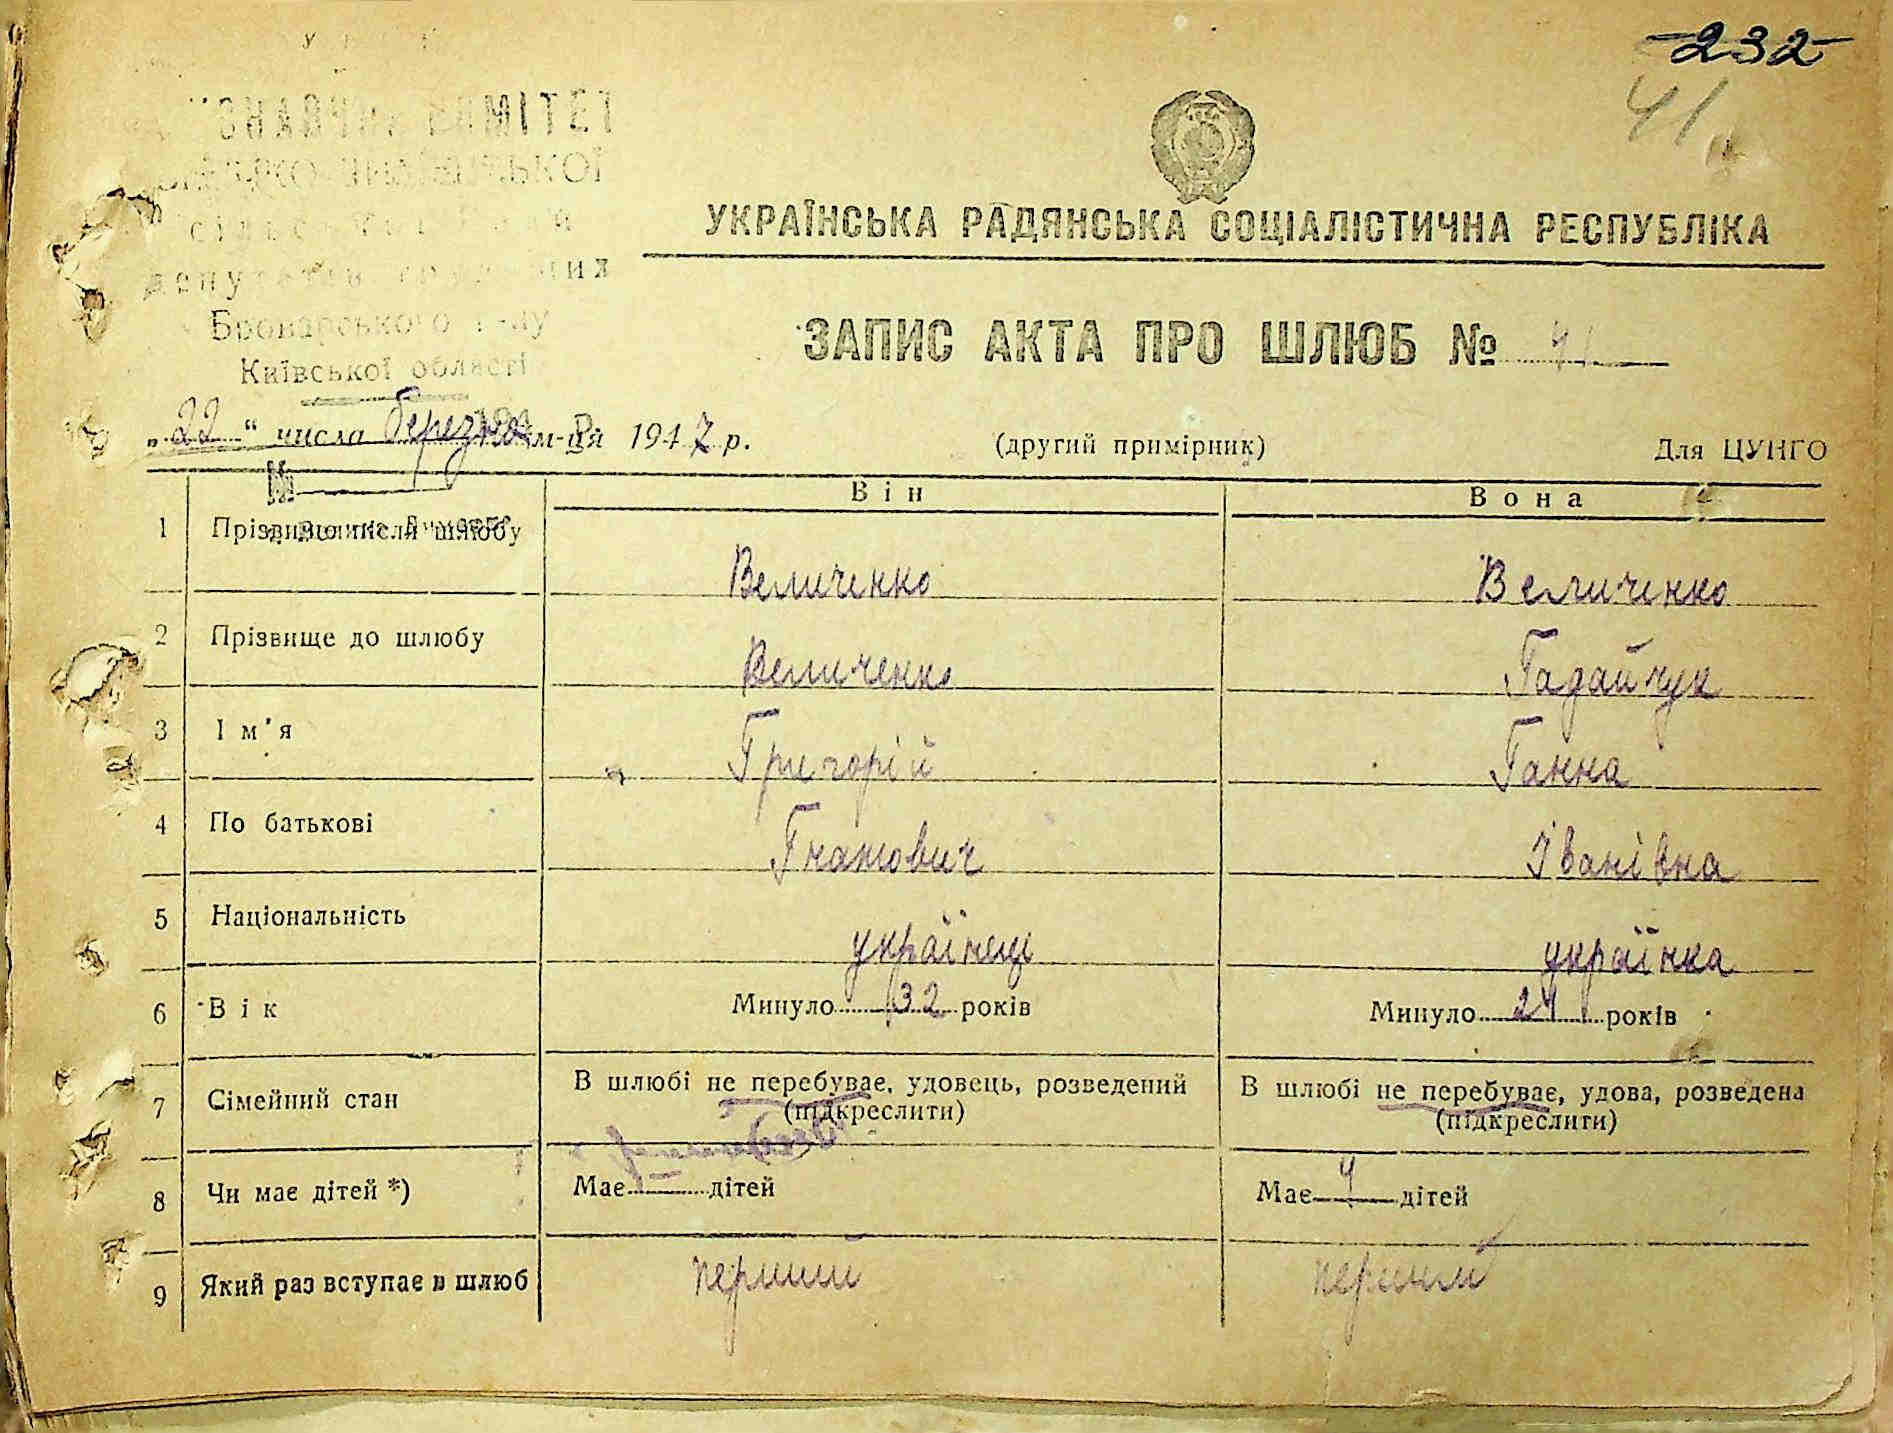 232
41
КОМІТЕТ
Броварського р-ну
Київської області
УКРАЇНСЬКА РАДЯНСЬКА СОЦІАЛІСТИЧНА РЕСПУБЛІКА
ЗАПИС АКТА ПРО ШЛЮБ № 41
„22" числа березня м-ця 1947 р.
(другий примірник)
Для ЦУНГО
№
Він
Вона
1 Прізвище після шлюбу Величенко Величенко
2 Прізвище до шлюбу Величенко Гадайчук
3 Ім'я Григорій Ганна
4 По батькові Гнатович Іванівна
5 Національність українець українка
6 Вік Минуло 32 років Минуло 24 років
7 Сімейний стан В шлюбі не перебуває, удовець, розведений В шлюбі не перебуває, удова, розведена
(підкреслити) (підкреслити)
8 Чи має дітей *) Має — дітей Має дітей
9 Який раз вступає в шлюб перший перший